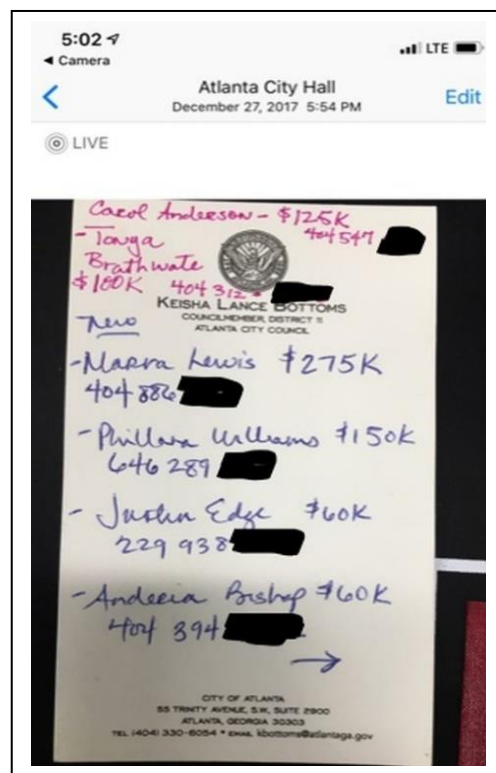 5:02
LTE
◀ Camera
Atlanta City Hall
December 27, 2017 5:54 PM
Edit
LIVE
Carol Anderson - $125K
404 547
- Tonya
Brathwate
$100K 404 312
KEISHA LANCE BOTTOMS
COUNCILMEMBER, DISTRICT 11
ATLANTA CITY COUNCIL
New
- Marva Lewis $275K
404 886
- Phillana Williams $150K
646 289
- Justin Edge $60K
229 938
- Andreeia Bishop $60K
404 394
→
CITY OF ATLANTA
55 TRINITY AVENUE, S.W, SUITE 2900
ATLANTA, GEORGIA 30303
TEL (404) 330-6054 * EMAIL kbottoms@atlantaga.gov